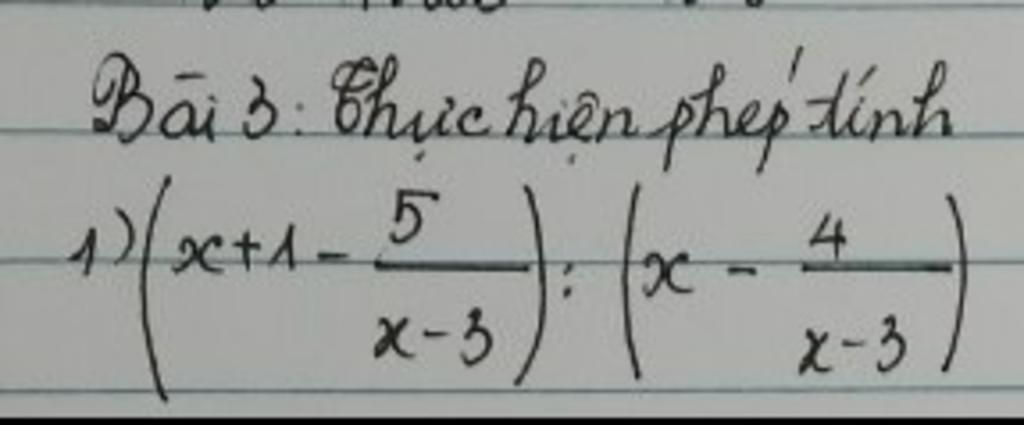 Bài 3: Thực hiện phép tính
1) (x+1 - 5/(x-3)) : (x - 4/(x-3))